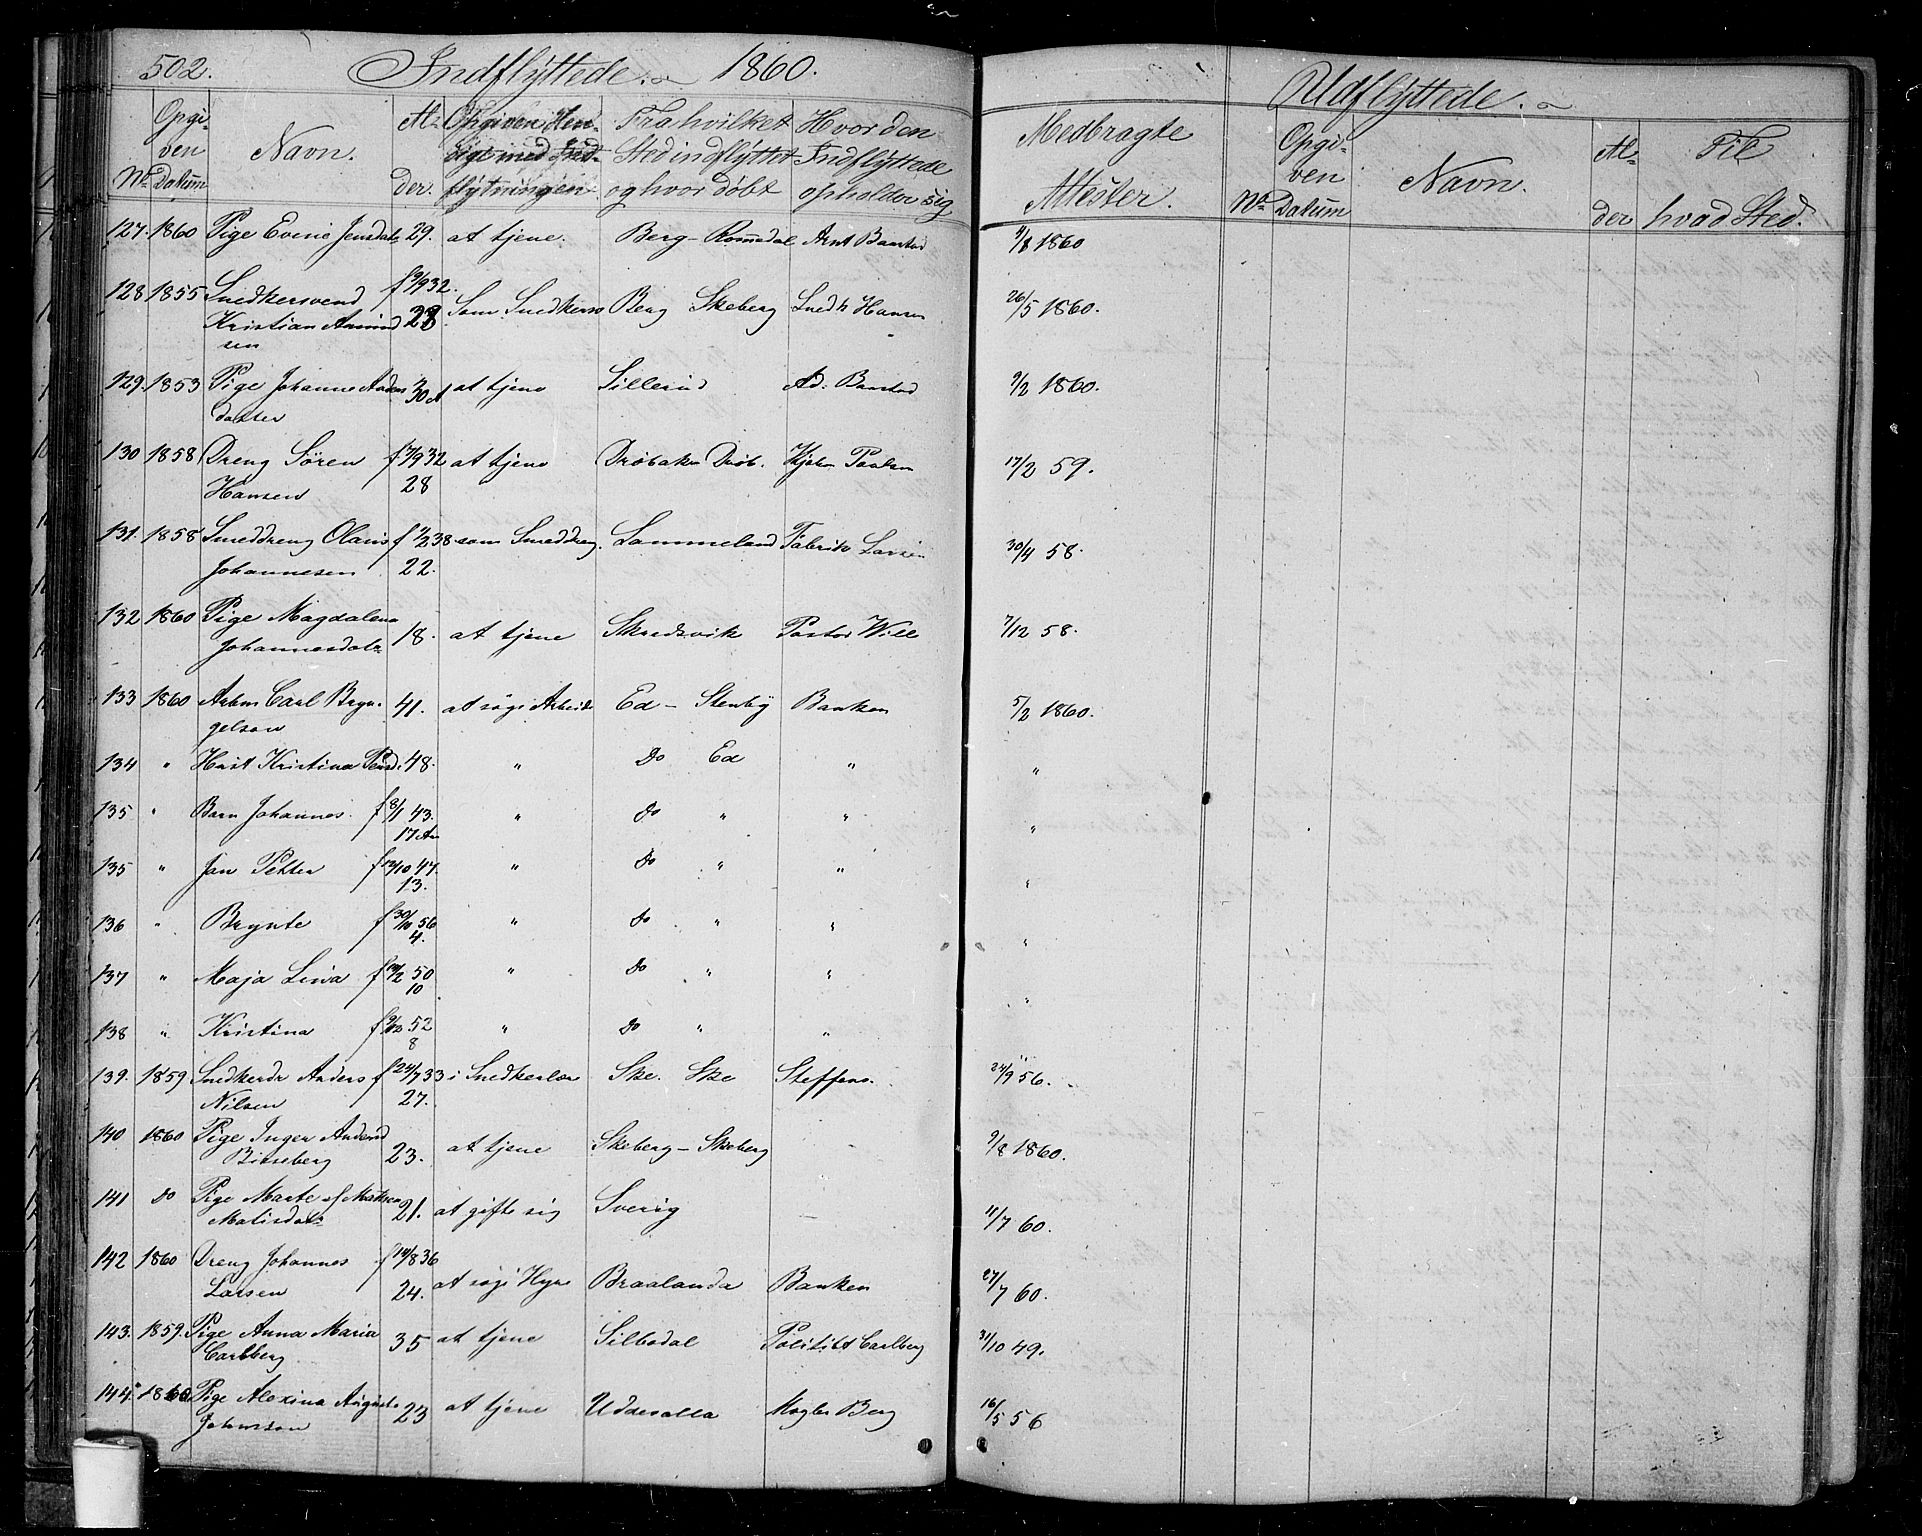 502. Indflyttede. 1860.
No Opgiven Datum Navn. Alder. Opgiven Hensigt med Indflytningen Fra hvilket Sted indflyttet og hvor døbt Hvor den Indflyttede opholder sig Medbragte Attester.
Udflyttede.
No Opgiven Datum Navn. Alder Til hvad Sted.
127. 1860 Pige Evene Jensdat. 29. at tjene. Berg - Romsdal Arnt Banstad 9/8 1860
128 1855 Snedkersvend f 9/9 32. Som Snedkersv Berg Skeberg Snedk Hansen 26/5 1860.
Kristian Amund 28
sen
129. 1853 Pige Johanne Anders 30 A at tjene Sillerud Ad. Banstad 9/2 1860.
datter
130 1858 Dreng Sören f 7/9 32 at tjene Dröbak Dröb. Kjøbm Paulsen 17/2 59.
Hansen 28
131. 1858 Smeddreng Olaus f 1/2 38 som Smeddreng. Lommeland Fabrik Larsen 30/4 58.
Johannesen 22.
132 1860 Pige Magdalena 18. at tjene Skredsvik Pastor Wille 7/12 58.
Johannesdat
133 1860 Arbm Carl Bryn- 41. at søge Arbeide Ed - Stenby Banken 5/2 1860.
gelson
134 " Hust Kristina Persd. 48. " Do Ed " "
135 " Barn Johannes. f 8/1 43. " Do " " "
17 Aar
135 " Jan Petter f 12/10 47. " Do " " "
13.
136 " Brynte f 30/10 56 " Do " " "
4.
137 " Maja Lisa f 12/2 50 " Do " " "
10
138 " Kristina f 9/12 52 " Do " "
8
139. 1859 Snedkerdr Anders f 24/7 33 i Snedkerlære Ske. Ske Steffens. 24/9 56.
Nilsen 27.
140 1860 Pige Inger Andersd 23. at tjene Skeberg - Skeberg 9/8 1860.
Birseberg
141 Do Pige Marte 21. at gifte sig Sverig 11/7 60.
Matisdat
142 1860 Dreng Johannes f 14/8 36 at søge Hyre Braalanda Banken 27/7 60.
Larsen 24.
143. 1859. Pige Anna Maria 35 at tjene Silbodal Politibt Carlberg 31/10 49.
Carlberg
144. 1860 Pige Alexina Augusta 23 at tjene Uddevalla Mægler Berg 16/5 56
Johnsson